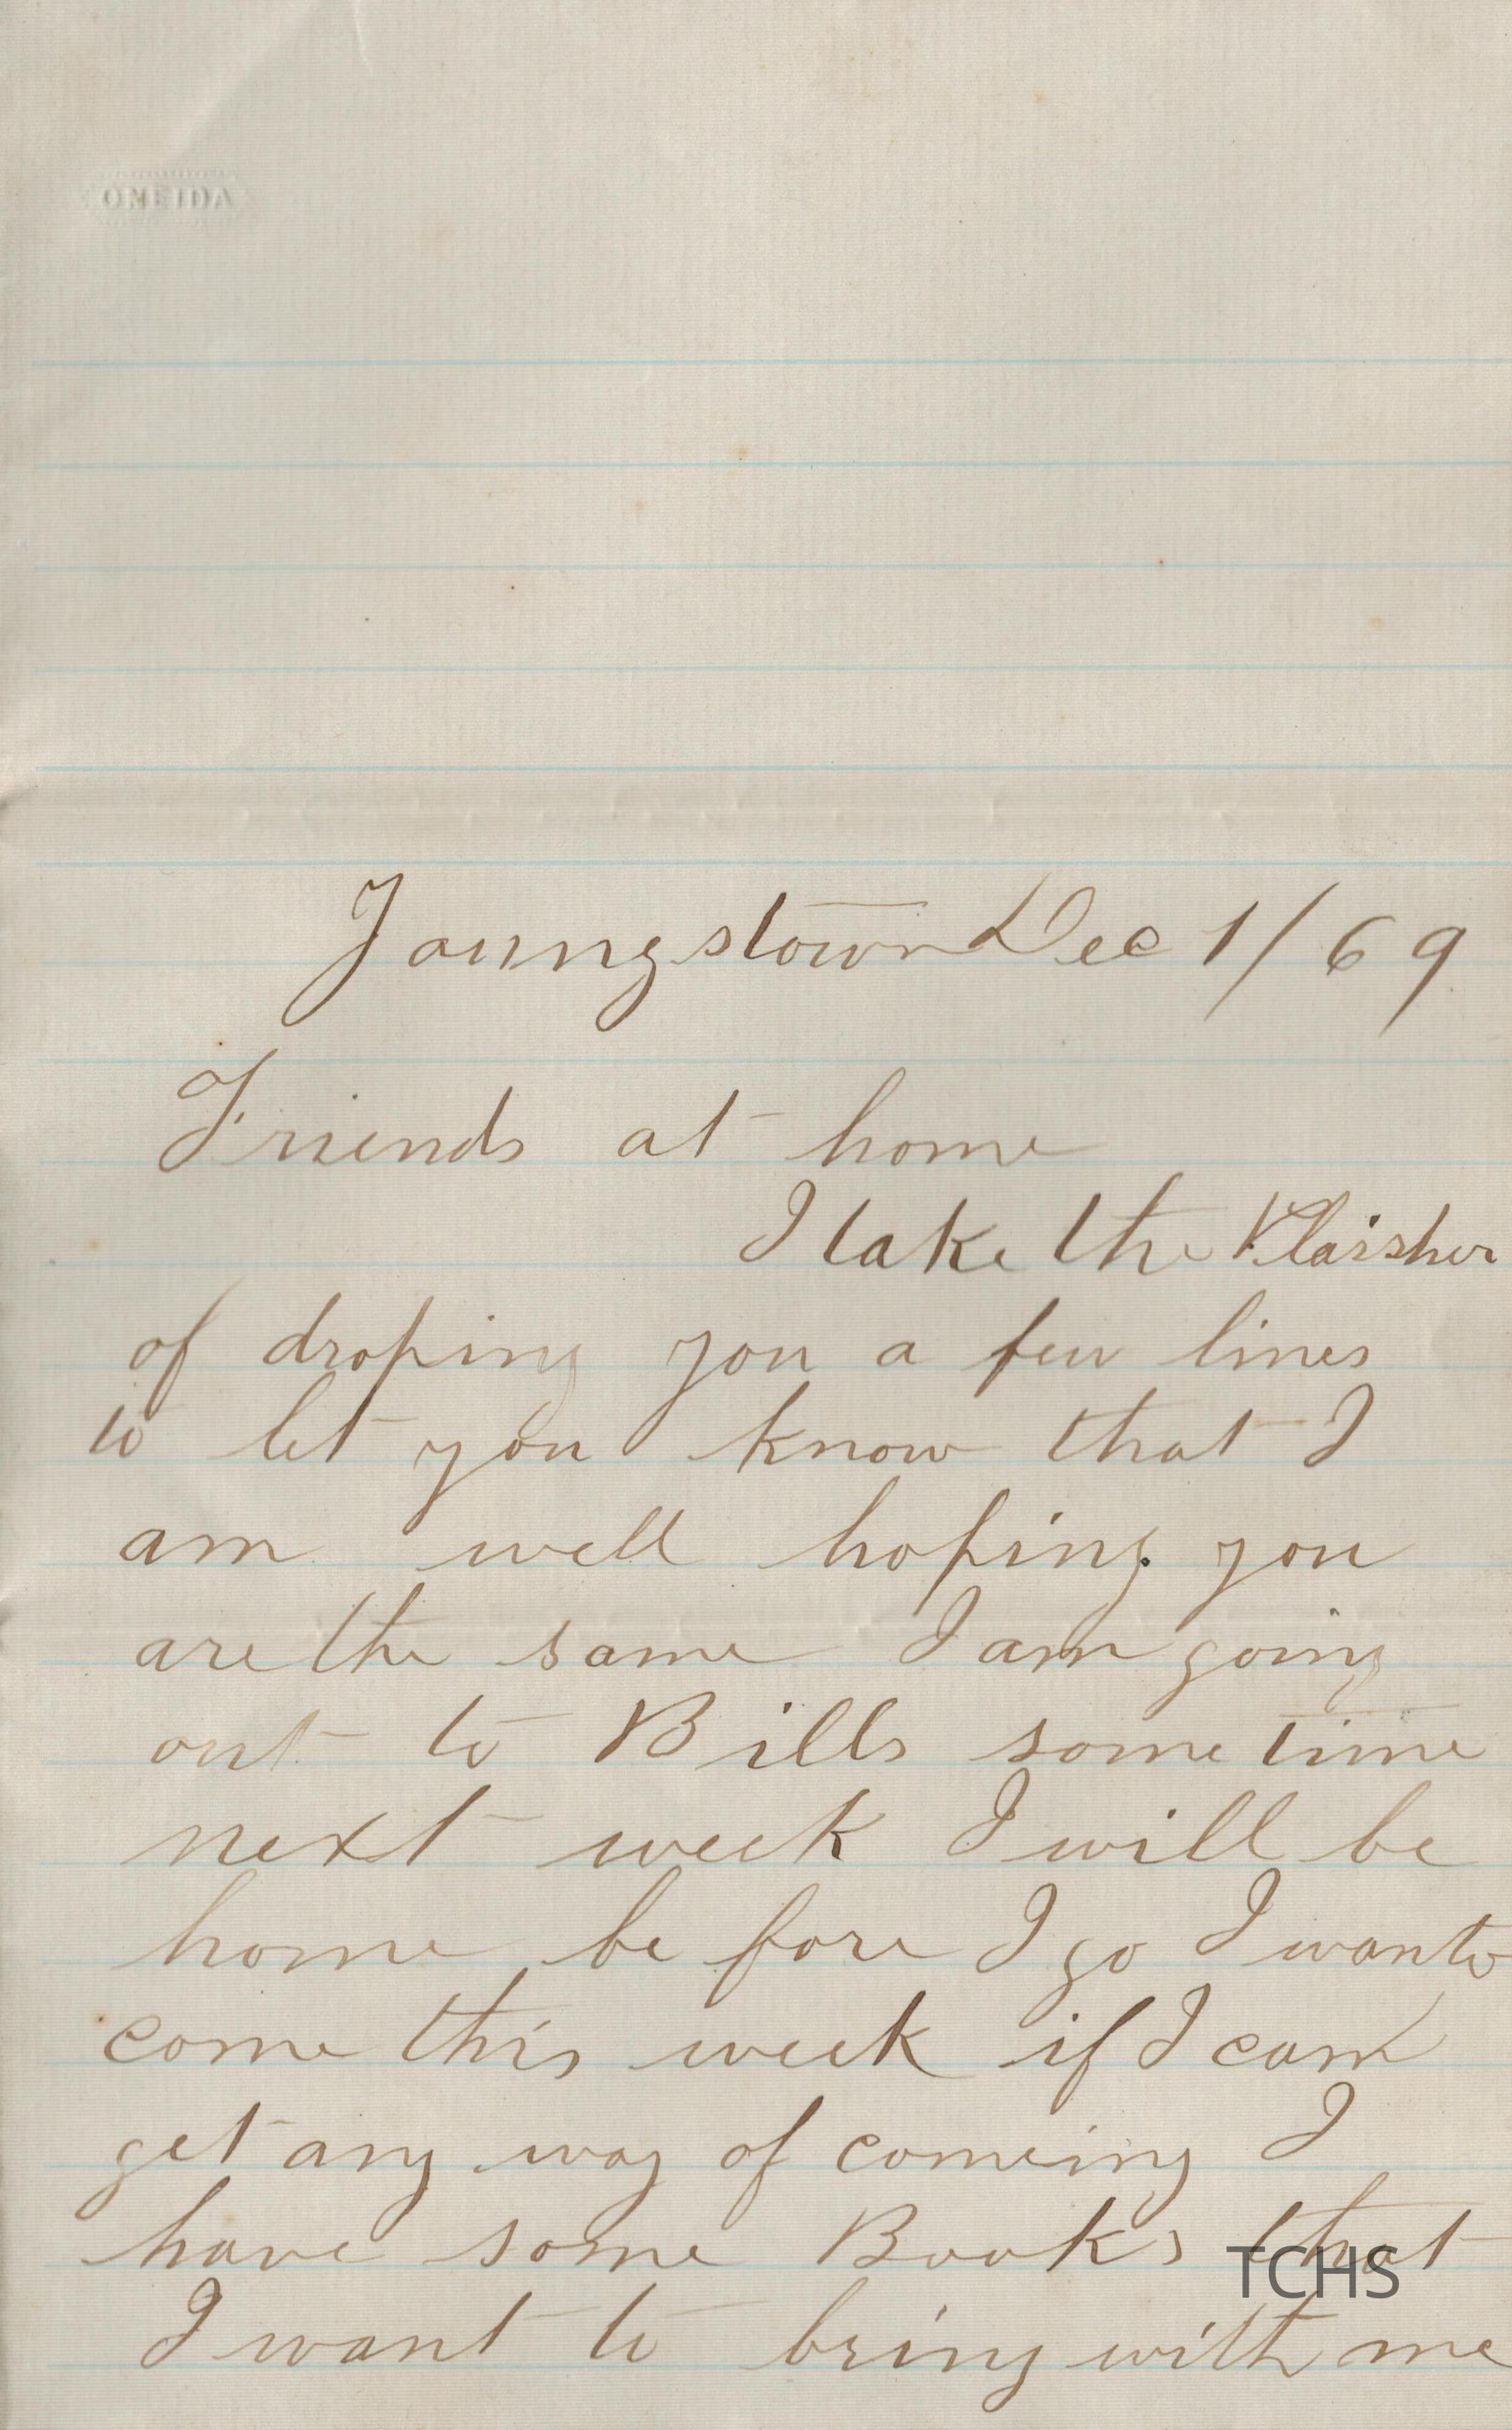 ONEIDA
Youngstown Dec 1/69
Friends at home
I take the Plaisher
of droping you a few lines
to let you know that I
am well hoping you
are the same I am going
out to Bills some time
next week I will be
home be fore I go I want to
come this week if I can
get any way of comeing I
have some Books that
TCHS
I want to bring with me